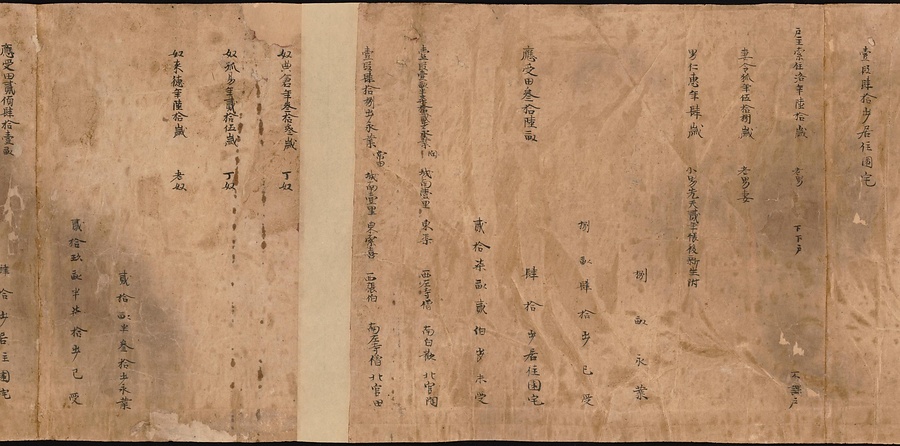 壹段肆拾步居住園宅
戶主索仁洛年陸拾歲 老男 下下戶 不課戶
妻令狐年伍拾捌歲 老男妻
男仁惠年肆歲 小男先天貳年帳後新生附
捌畝永業
捌畝肆拾步已受
應受田叁拾陸畝 肆拾步居住園宅
貳拾柒畝貳伯步未受
城南壹里 東渠 西左寺僧 南白 北官
壹段肆拾捌步永業 常田 城南壹里 東索善 西張伯 南左寺僧 北官田
奴典倉年叁拾叁歲 丁奴
奴狐易年貳拾伍歲 丁奴
奴來德年陸拾歲 老奴
貳拾畝半叁拾步永業
貳拾玖畝半柒拾步已受
應受田貳頃肆拾壹畝 肆拾步居住園宅